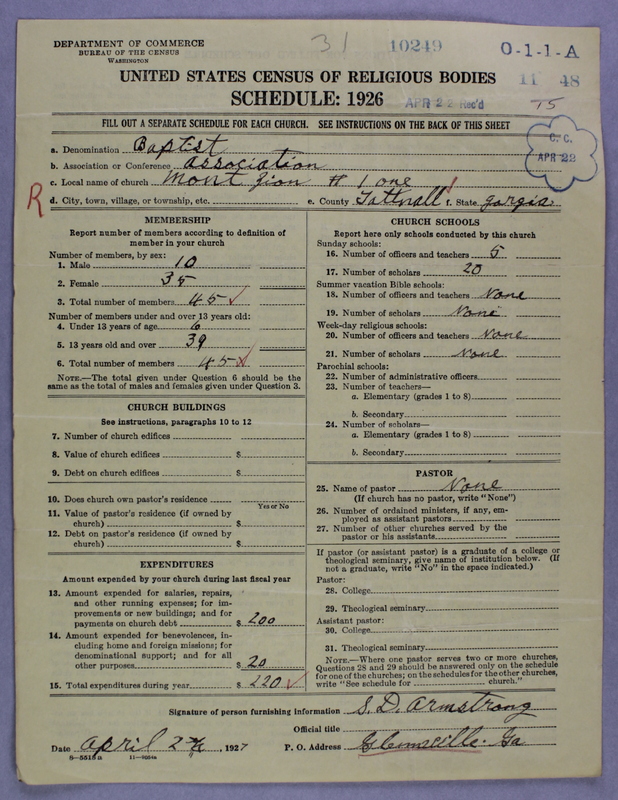 DEPARTMENT OF COMMERCE
BUREAU OF THE CENSUS
WASHINGTON
31
10249
O-1-1-A
11 48
UNITED STATES CENSUS OF RELIGIOUS BODIES
SCHEDULE: 1926
APR 22 Rec'd
15
FILL OUT A SEPARATE SCHEDULE FOR EACH CHURCH. SEE INSTRUCTIONS ON THE BACK OF THIS SHEET
C. C.
APR 22
a. Denomination Baptist
b. Association or Conference association
c. Local name of church Mont Zion # 1 one
R
d. City, town, village, or township, etc. e. County Tattnall f. State gorgia
MEMBERSHIP
Report number of members according to definition of
member in your church
Number of members, by sex:
1. Male 10
2. Female 35
3. Total number of members 45
Number of members under and over 13 years old:
4. Under 13 years of age 6
5. 13 years old and over 39
6. Total number of members 45
NOTE.—The total given under Question 6 should be
same as the total of males and females given under Question 3.
CHURCH BUILDINGS
See instructions, paragraphs 10 to 12
7. Number of church edifices
8. Value of church edifices $
9. Debt on church edifices $
10. Does church own pastor's residence
Yes or No
11. Value of pastor's residence (if owned by
church) $
12. Debt on pastor's residence (if owned by
church) $
EXPENDITURES
Amount expended by your church during last fiscal year
13. Amount expended for salaries, repairs,
and other running expenses; for im-
provements or new buildings; and for
payments on church debt $ 200
14. Amount expended for benevolences, in-
cluding home and foreign missions; for
denominational support; and for all
other purposes $ 20
15. Total expenditures during year $ 220
CHURCH SCHOOLS
Report here only schools conducted by this church
Sunday schools:
16. Number of officers and teachers 5
17. Number of scholars 20
Summer vacation Bible schools:
18. Number of officers and teachers None
19. Number of scholars None
Week-day religious schools:
20. Number of officers and teachers None
21. Number of scholars None
Parochial schools:
22. Number of administrative officers
23. Number of teachers—
a. Elementary (grades 1 to 8)
b. Secondary
24. Number of scholars—
a. Elementary (grades 1 to 8)
b. Secondary
PASTOR
25. Name of pastor None
(If church has no pastor, write "None")
26. Number of ordained ministers, if any, em-
ployed as assistant pastors
27. Number of other churches served by the
pastor or his assistants
If pastor (or assistant pastor) is a graduate of a college or
theological seminary, give name of institution below. (If
not a graduate, write "No" in the space indicated.)
Pastor:
28. College
29. Theological seminary
Assistant pastor:
30. College
31. Theological seminary
NOTE.—Where one pastor serves two or more churches,
Questions 28 and 29 should be answered only on the schedule
for one of the churches; on the schedules for the other churches,
write "See schedule for church."
Signature of person furnishing information S. D. Armstrong
Official title
Date april 1927 P. O. Address Glennville. Ga
8—5513a 11—9034a